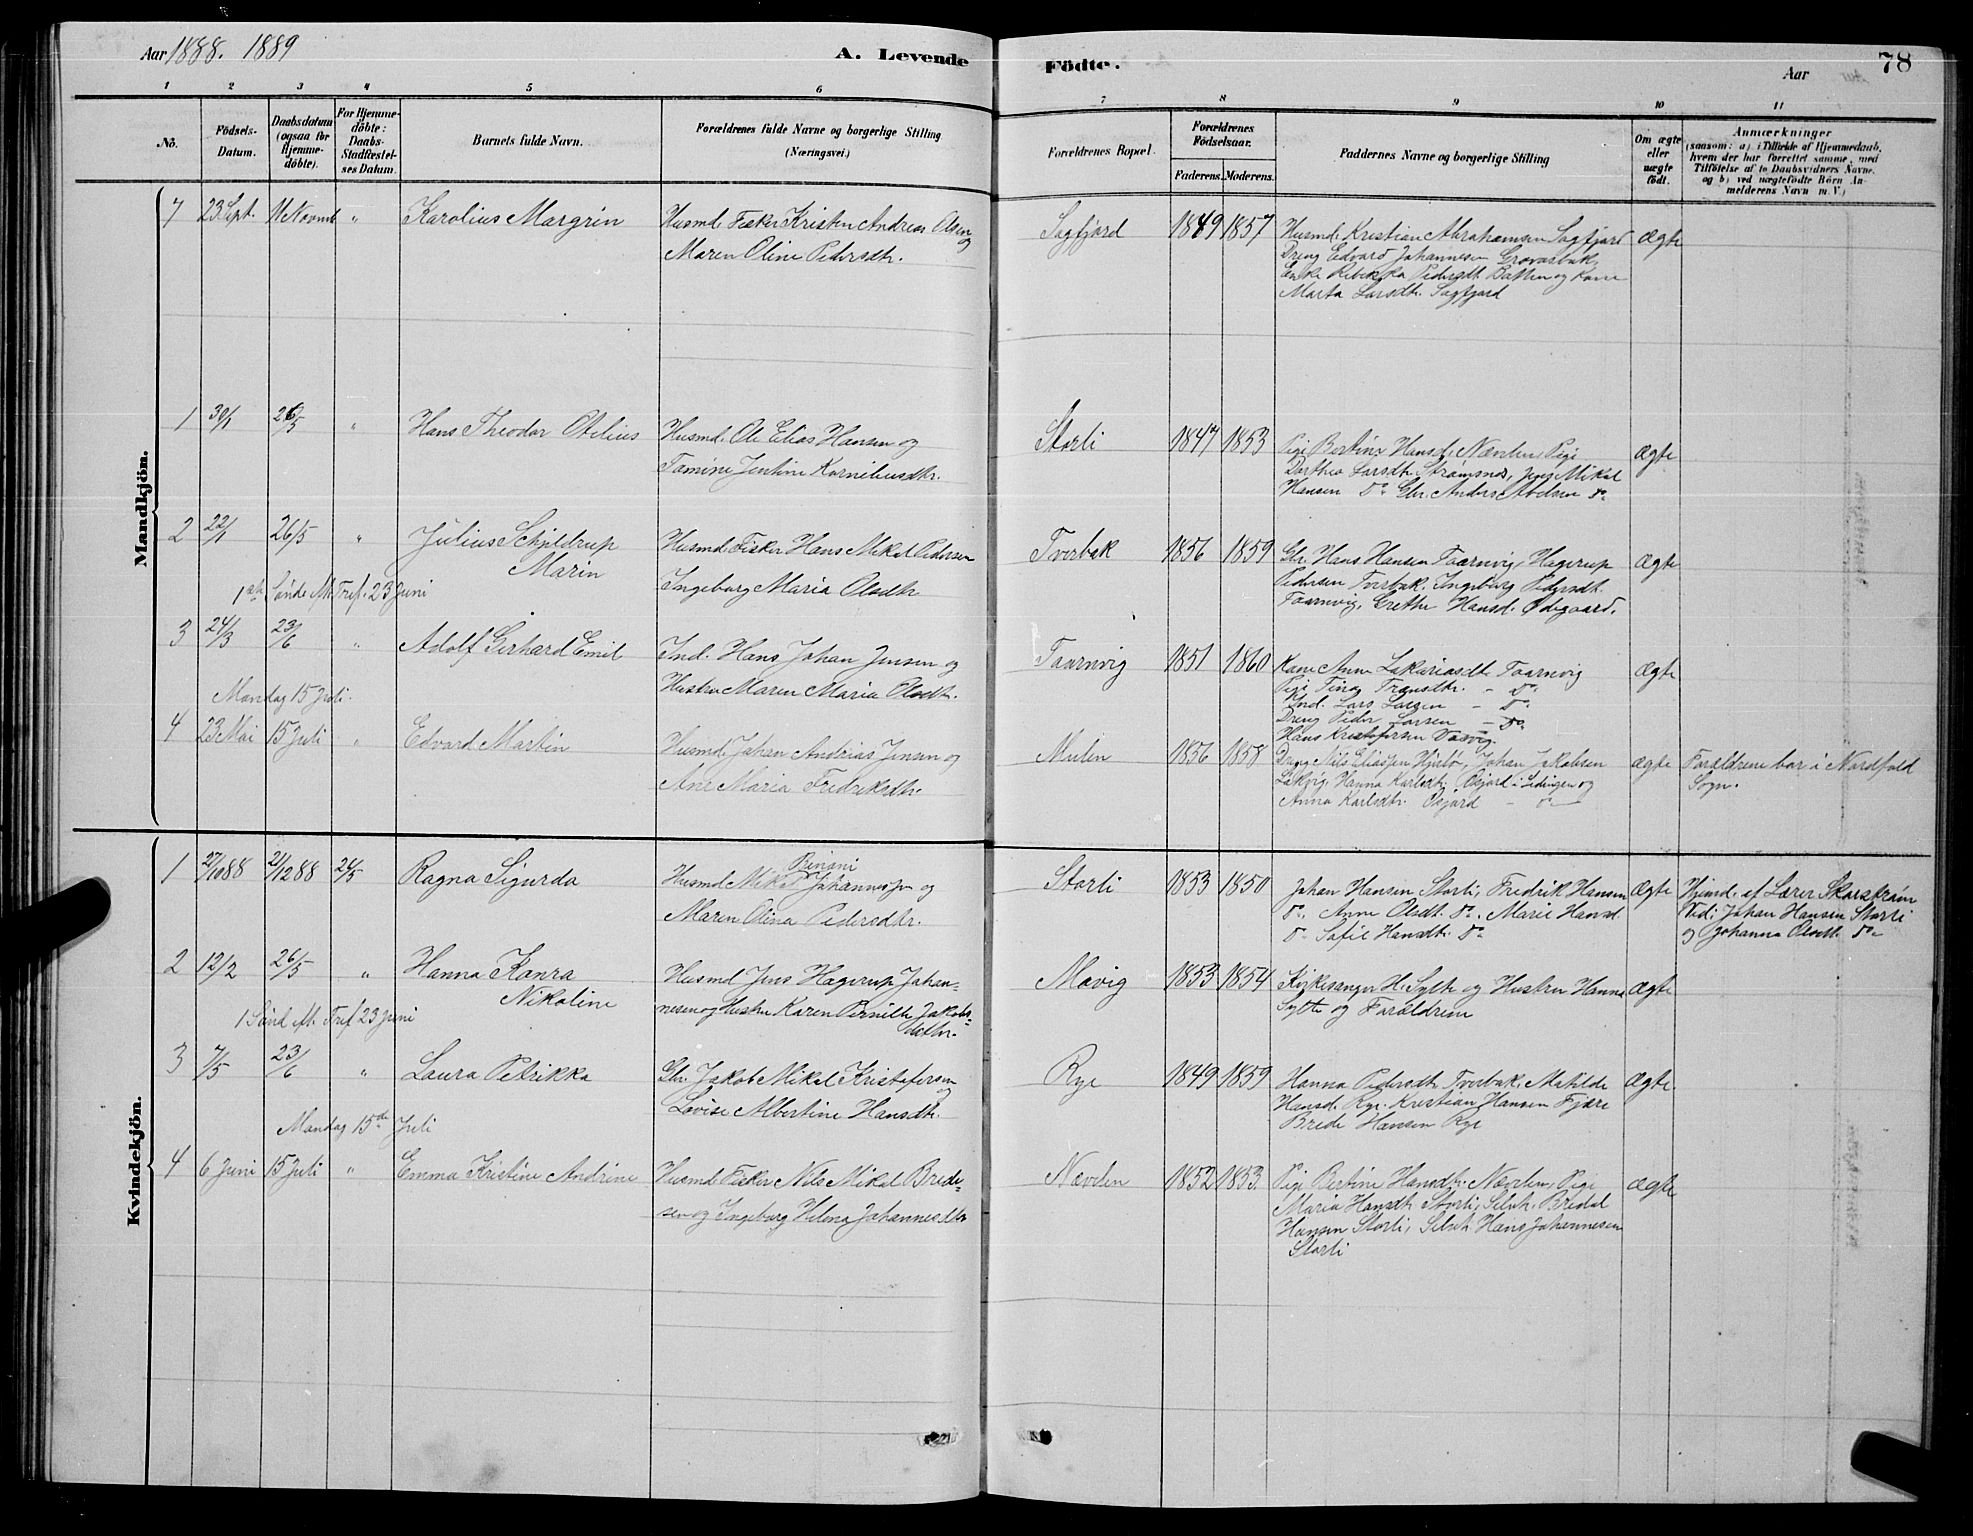 Aar 1888. 1889
A. Levende
Födte.
Aar
78
1 2 3 4 5 6 7 8 9 10 11
No.
Födsels-
Datum.
Daabsdatum
(ogsaa for
Hjemme-
döbte).
For Hjemme-
döbte:
Daabs-
Stadfæstel-
ses Datum.
Barnets fulde Navn.
Forældrenes fulde Navne og borgerlige Stilling
(Næringsvei.)
Forældrenes Bopæl.
Forældrenes
Födselsaar.
Faderens. Moderens.
Faddernes Navne og borgerlige Stilling
Om ægte
eller
uægte
födt.
Anmærkninger
(saasom: a) i Tilfælde af Hjemmedaab,
hvem der har forrettet samme, med
Tilföielse af to Daabsvidners Navne,
og b) ved uægtefödte Börn An-
melderens Navn m. V.)
Mandkjön.
7 23 Sept. 11 Novmb " Karolius Margrin
Husmd. Fisker Kristen Andreas Olsen og
Maren Oline Pedersdtr.
Sagfjord 1849 1857
Husmd. Kristian Abrahamsen Sagfjord
Dreng Edvard Johannesen
Enke Rebekka Pedersdt. og Kone
Marta Larsdtr. Sagfjord
Ægte
1 30/1 26/5 " Hans Theodor Otelius
Husmd. Ole Elias Hansen og
Tomine Jentine Korneliusdtr.
Storli 1847 1853
Pige Bertine Hansd. Nævelen, Pige
Dorthea Larsdtr. Strømsnes, Jens Mikal
Hansen Do. Gbr. Anders Abelsen Do.
Ægte
2 22/1 26/5 " Julius Schjeldrup
Marin
Husmd. Fisker Hans Mikal Pedersen
Ingeborg Maria Olsdtr.
Tverbak 1856 1859
Gbr. Hans Hansen Taarnvig, Hagerup
Pedersen Tverbak, Ingeborg Pedersdt.
Taarnvig, Grethe Hansd. Ødegaard.
Ægte
1ste Sønd. M. Tref. 23 Juni
3 24/3 23/6 " Adolf Gerhard Emil
Ind. Hans Johan Jensen og
Hustru Maren Maria Olsdtr.
Taarnvig 1851 1860
Kone Anne Zakariasdt. Taarnvig
Pige Tina Fransdtr. - Do.
Ind. Lars Larsen - Do.
Dreng Peder Larsen - Do.
Ægte
Mandag 15 Juli.
4 23 Mai 15 Juli " Edvard Martin
Husmd. Johan Andreas Jensen og
Ane Maria Fredriksdtr.
Mulen 1856 1858
Hans Kristofersen
Dreng Nils Eliassen, Johan Jakobsen
Hanna Karlsdtr. i Lødingen og
Anna Karlsdtr. - Do.
Ægte
Forældrene bor i Nordfold
Sogn.
Kvindekjön.
1 27/10 88 21/12 88 26/5 Ragna Sigurda
Benoni
Husmd Mikal Johannesn og
Maren Olina Pedersdtr.
Storli 1853 1850
Johan Hansen Storli, Fredrik Hansen
Do., Anne Olsdt. Do., Marie Hansd
Do Sofie Hansdtr. Do
Ægte
Hjemd. af Lærer Skarstrøm
Vid: Johan Hansen Storli
og Johanna Olsdt. Do
2 12/2 26/5 " Hanna Konra
Nikoline
Husmd Jens Hagerup Johan-
nesen og Hustru Karen Pernille Jakobs-
datter.
Møvig 1853 1854
Kirkesanger H. Sylte og Hustru Hanna
Sylte og Forældrene
Ægte
1 Sønd M. Tref 23 Juni
3 7/5 23/6 " Laura Petrikka
Gbr. Jakob Mikal Kristofersen og
Lovise Albertine Hansdt.
Rye 1849 1859
Hanna Pedersdtr. Tverbak, Matilde
Hansd. Rye. Kristian Hansen Fjære
Brede Hansen Rye
Ægte
Mandag 15de Juli
4 6 Juni 15 Juli " Emma Kristine Andrine
Husmd Fisker Nils Mikal Brede-
sen og Ingeborg Helena Johannesdtr
Nævelen 1852 1853.
Pige Bertine Hansdtr. Nævelen, Pige
Maria Hansdtr Storli, Selvst. Bredal
Hansen Storli, Selvst Hans Johannesen
Storli
Ægte